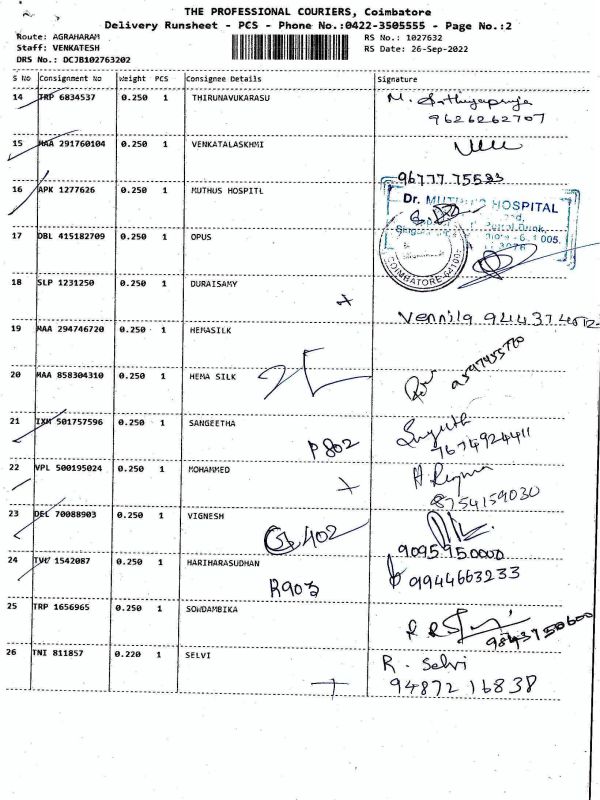 THE PROFESSIONAL COURIERS, Coimbatore
Delivery Runsheet - PCS - Phone No.:0422-3505555 - Page No.:2
Route: AGRAHARAM RS No.: 1027632
Staff: VENKATESH RS Date: 26-Sep-2022
DRS No.: DCJB102763202
S No Consignment No Weight PCS Consignee Details Signature
14 TRP 6834537 0.250 1 THIRUNAVUKARASU
9626262707
15 MAA 291760104 0.250 1 VENKATALASKHMI
96777 75583
16 APK 1277626 0.250 1 MUTHUS HOSPITL
Dr. MUTHU'S HOSPITAL
17 DBL 415182709 0.250 1 OPUS
COIMBATORE
18 SLP 1231250 0.250 1 DURAISAMY
Vennila
19 MAA 294746720 0.250 1 HEMASILK
20 MAA 858304310 0.250 1 HEMA SILK
21 IXM 501757596 0.250 1 SANGEETHA
P802
7674924411
22 VPL 500195024 0.250 1 MOHAMMED
8754159030
23 DEL 70088903 0.250 1 VIGNESH
402
9095950000
24 TVC 1542087 0.250 1 HARIHARASUDHAN
R903 9944663233
25 TRP 1656965 0.250 1 SOWDAMBIKA
9843750600
26 TNI 811857 0.220 1 SELVI
R. Selvi
94872 16838